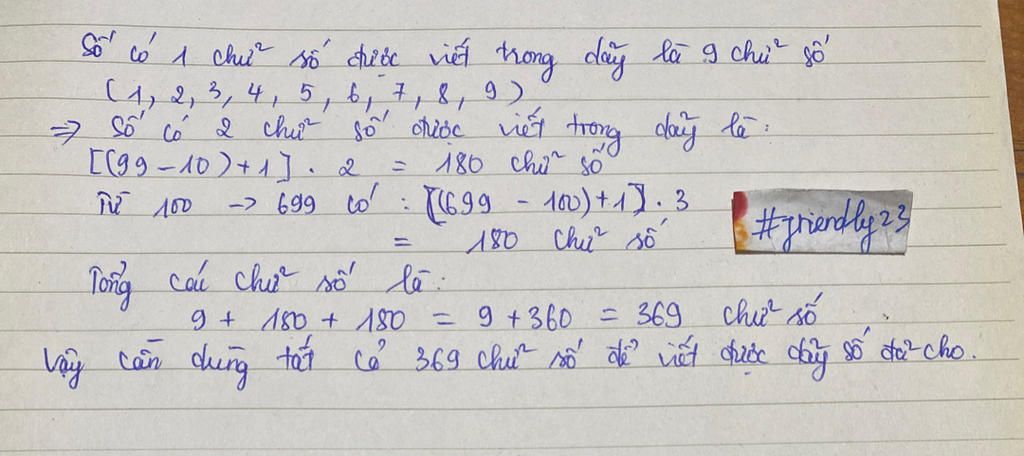 Số có 1 chữ số được viết trong dãy là 9 chữ số
(1, 2, 3, 4, 5, 6, 7, 8, 9)
=> Số có 2 chữ số được viết trong dãy là:
[(99 - 10) + 1] . 2 = 180 chữ số
Từ 100 -> 699 có : [(699 - 100) + 1] . 3
= 180 chữ số
#friendly23
Tổng các chữ số là:
9 + 180 + 180 = 9 + 360 = 369 chữ số
Vậy cần dùng tất cả 369 chữ số để viết được dãy số đã cho.